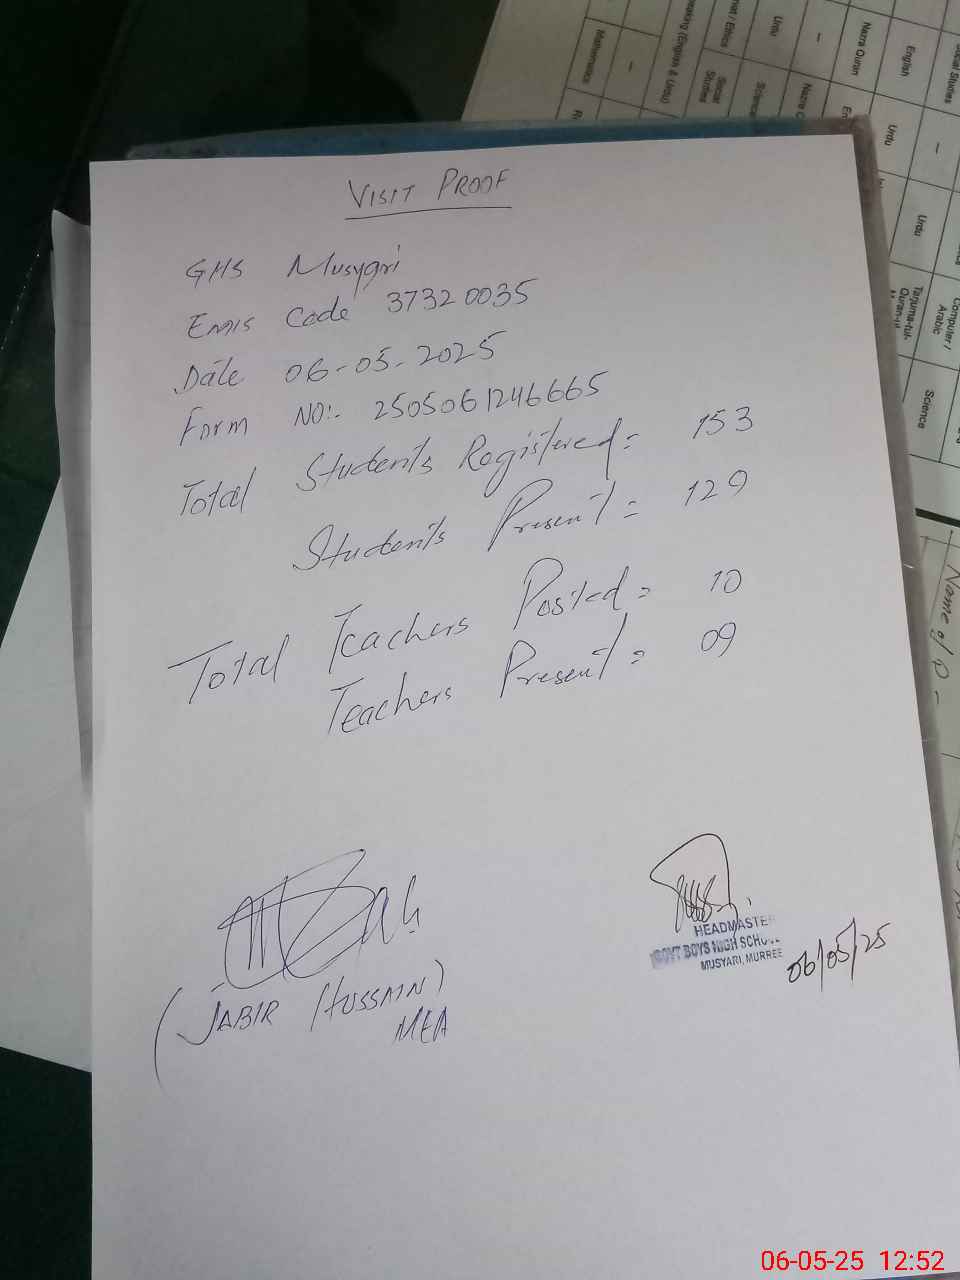 VISIT PROOF
GHS Musyari
EMIS Code 37320035
Date 06-05-2025
Form NO:- 2505061246665
Total Students Registered = 153
Students Present = 129
Total Teachers Posted = 10
Teachers Present = 09
(JABIR HUSSAIN)
MEA
HEADMASTER
GOVT BOYS HIGH SCHOOL
MUSYARI, MURREE
06/05/25
Mathematics
Social Studies
Urdu
Nazra Quran
English
Urdu
Urdu
Computer / Arabic
Tarjuma-tul-Quran-ul
Science
Name of
06-05-25 12:52